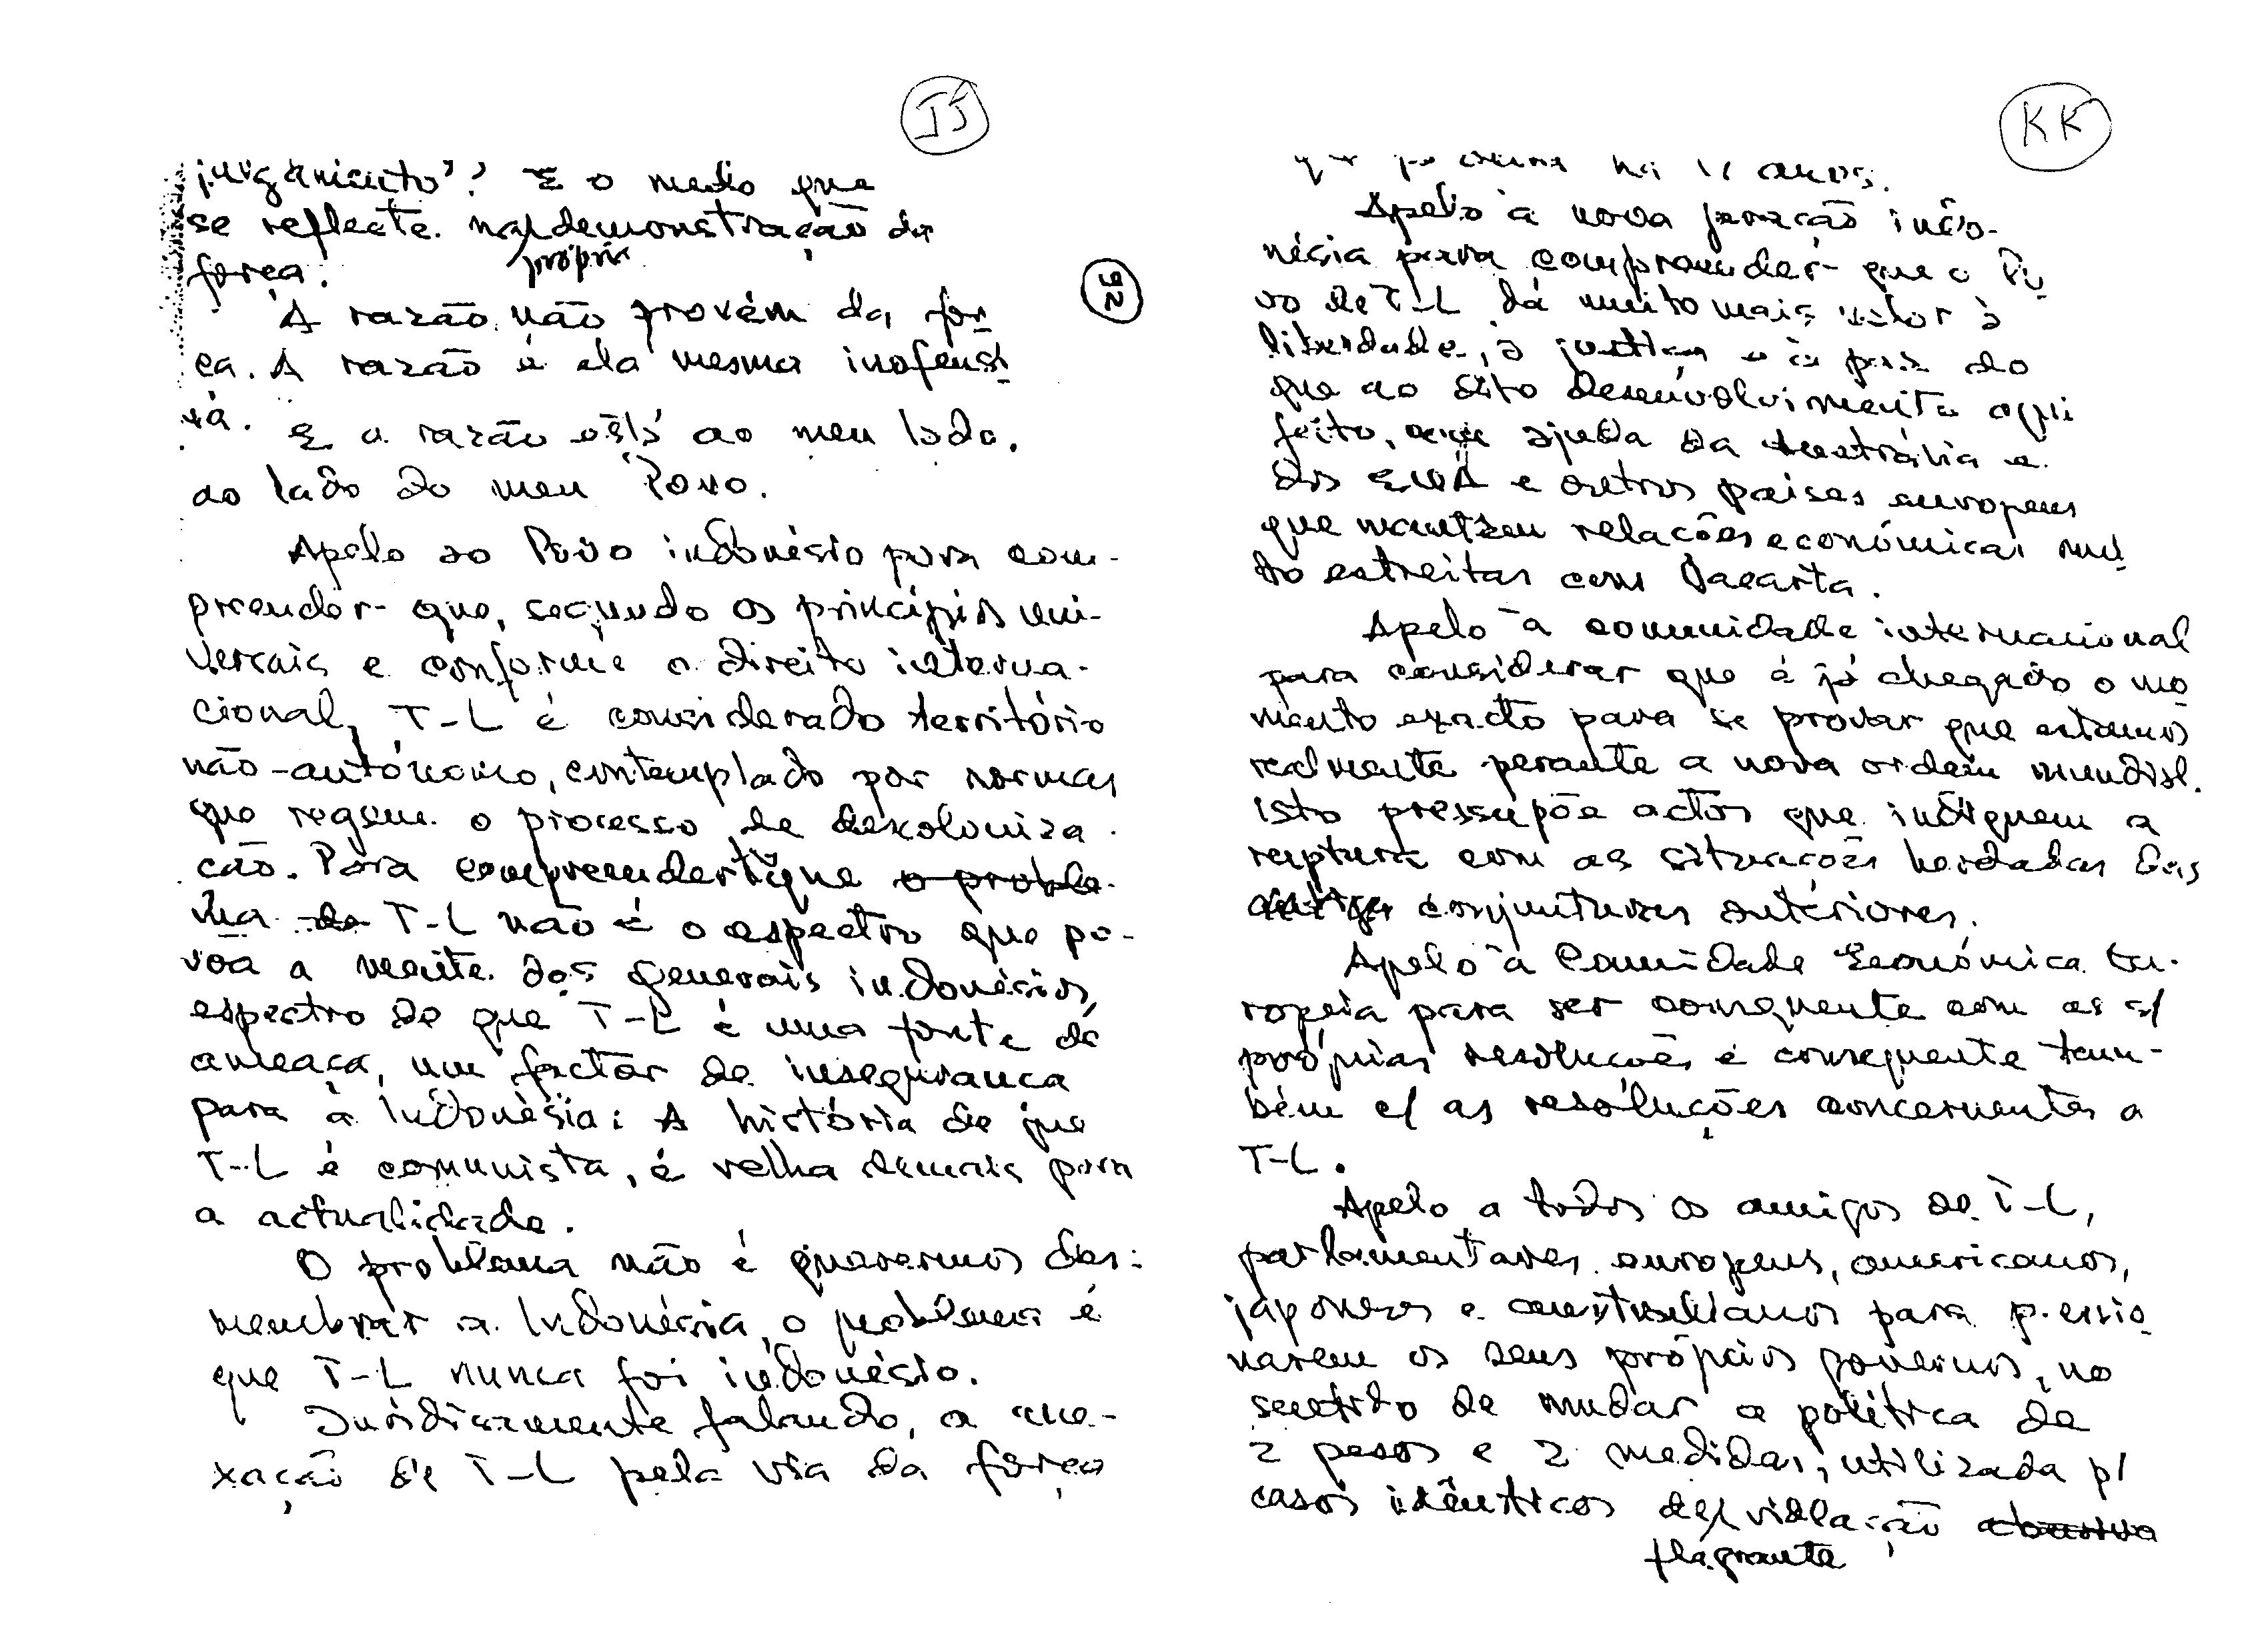 JJ
julgamento"? É o medo que
se reflecte na própria demonstração da
força.
A razão não provém da for
ça. A razão é ela mesma inofensi
va.
E a razão está ao meu lado,
ao lado do meu Povo.
Apelo ao Povo indonésio para com-
preender que, segundo os princípios uni-
versais e conforme o direito interna-
cional, T-L é considerado território
não-autónomo, contemplado por normas
que regem o processo de descoloniza
ção. Para compreender tb que o proble-
ma de T-L não é o espectro que po-
voa a mente dos generais indonésios,
espectro de que T-L é uma fonte de
ameaça, um factor de insegurança
para a Indonésia. A história de que
T-L é comunista, é velha demais para
a actualidade.
O problema não é querermos des-
membrar a Indonésia, o problema é
que T-L nunca foi indonésio.
Juridicamente falando, a ane-
xação de T-L pela via da força
92
KK
há anos.
Apelo à nova geração indo-
nésia para compreender que o Po
vo de T-L dá muito mais valor à
liberdade, à justiça e à paz do
que ao dito desenvolvimento aqui
feito, ajuda da Austrália e
dos EUA e outros países europeus
que mantêm relações económicas mui
to estreitas com Jacarta.
Apelo à comunidade internacional
para considerar que é já chegado o mo
mento exacto para se provar que estamos
realmente perante a nova ordem mundial.
Isto pressupõe actos que indiquem a
ruptura com as situações herdadas das
conjunturas anteriores.
Apelo à Comunidade Económica Eu-
ropeia para ser consequente com as s/
próprias resoluções e consequente tam-
bém c/ as resoluções concernentes a
T-L.
Apelo a todos os amigos de T-L,
parlamentares europeus, americanos,
japoneses e australianos para pressio
narem os seus próprios governos, no
sentido de mudar a política de
2 pesos e 2 medidas, utilizada p/
casos idênticos de flagrante violação